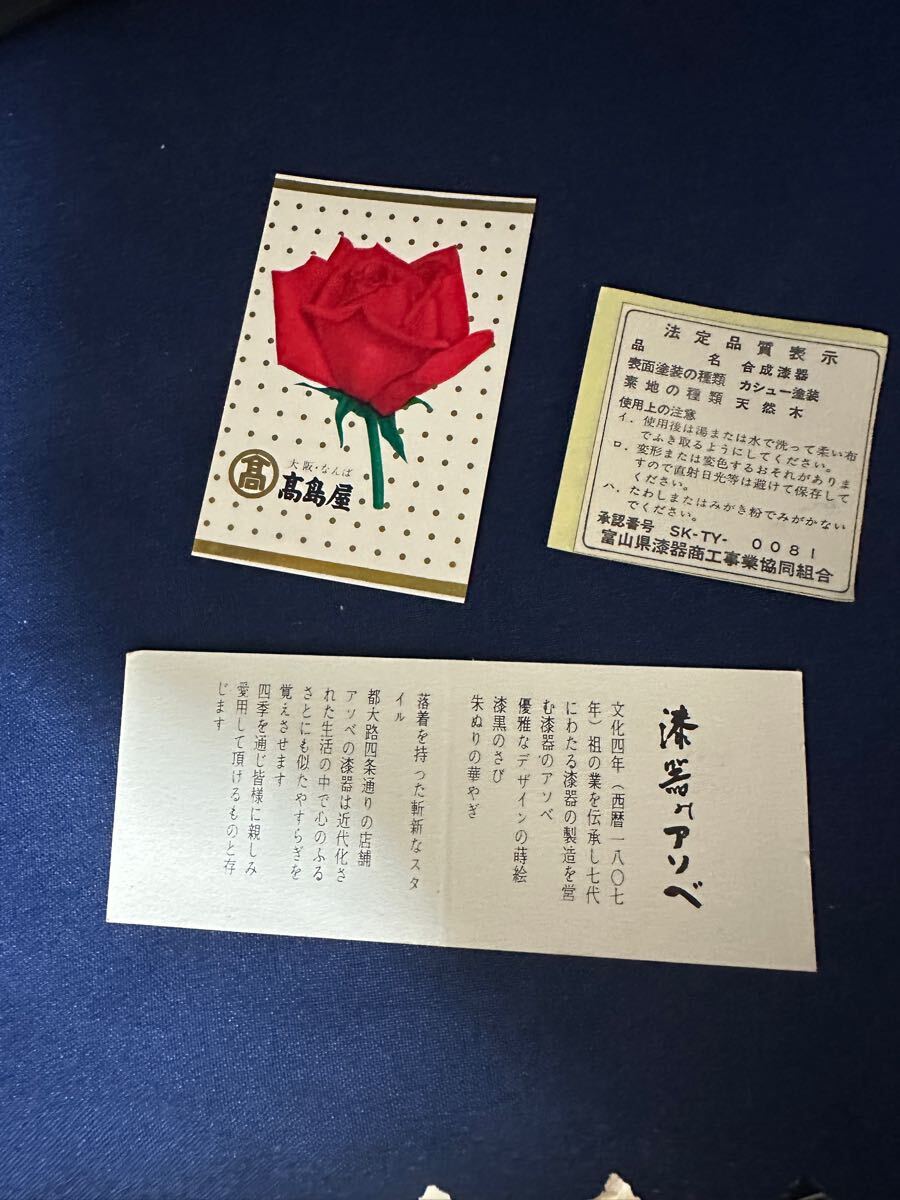 大阪・なんば
髙
髙島屋
法定品質表示
品名 合成漆器
表面塗装の種類 カシュー塗装
素地の種類 天然木
使用上の注意
イ．使用後は湯または水で洗って柔い布
でふき取るようにしてください。
ロ．変形または変色するおそれがありま
すので直射日光等は避けて保存して
ください。
ハ．たわしまたはみがき粉でみがかない
でください。
承認番号 SK-TY-0081
富山県漆器商工事業協同組合
漆器のアソベ
文化四年（西暦一八〇七
年）祖の業を伝承し七代
にわたる漆器の製造を営
む漆器のアソベ
優雅なデザインの蒔絵
漆黒のさび
朱ぬりの華やぎ
落着を持った斬新なスタ
イル
都大路四条通りの店舗
アソベの漆器は近代化さ
れた生活の中で心のふる
さとにも似たやすらぎを
覚えさせます
四季を通じ皆様に親しみ
愛用して頂けるものと存
じます